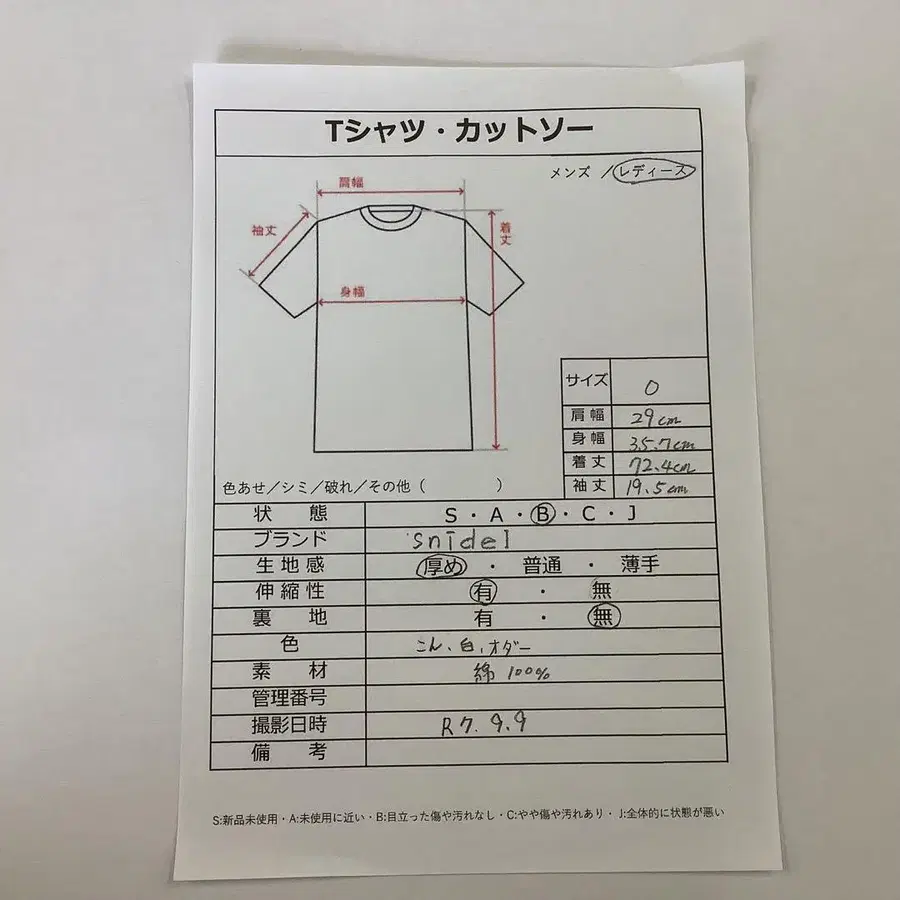 Tシャツ・カットソー
メンズ / レディース
肩幅
袖丈
着丈
身幅
サイズ 0
肩幅 29cm
身幅 35.7cm
着丈 72.4cm
袖丈 19.5cm
色あせ／シミ／破れ／その他（　　　　）
状態 S・A・B・C・J
ブランド snidel
生地感 厚め・普通・薄手
伸縮性 有・無
裏地 有・無
色 こん、白、オダー
素材 綿 100%
管理番号
撮影日時 R7.9.9
備考
S:新品未使用・A:未使用に近い・B:目立った傷や汚れなし・C:やや傷や汚れあり・J:全体的に状態が悪い